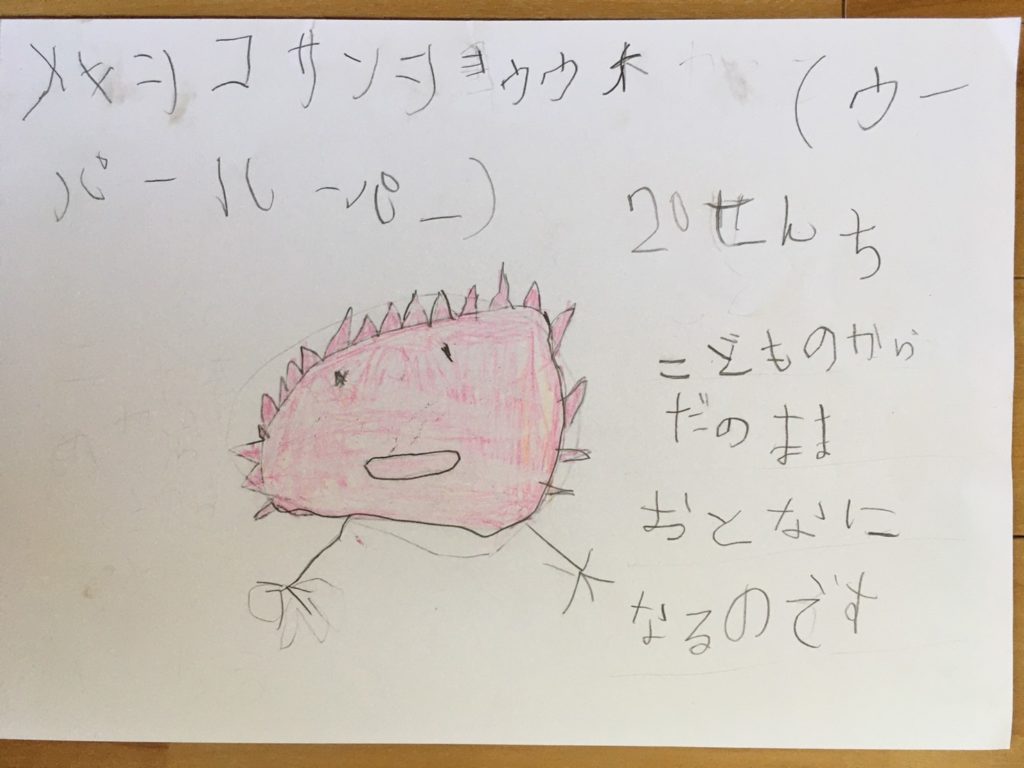 メキシコサンショウウオ（ウー
パールーパー）
20せんち
こどものから
だのまま
おとなに
なるのです